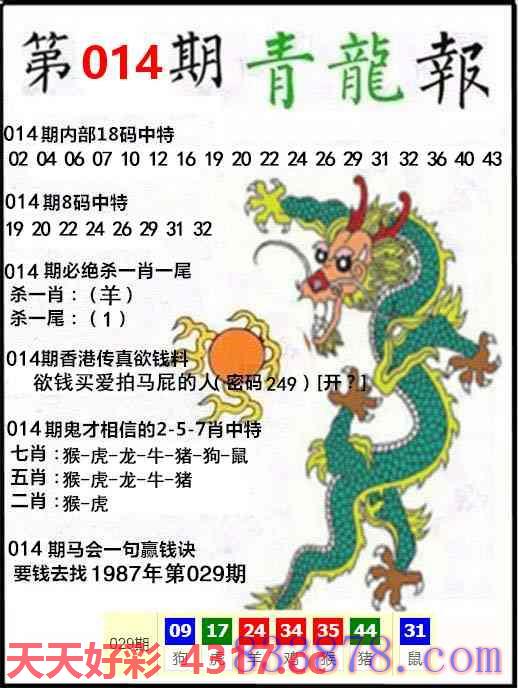 第014期青龍報
014期内部18码中特
02 04 06 07 10 12 16 19 20 22 24 26 29 31 32 36 40 43
014期8码中特
19 20 22 24 26 29 31 32
014期必绝杀一肖一尾
杀一肖：（羊）
杀一尾：（1）
014期香港传真欲钱料
欲钱买爱拍马屁的人（密码249）[开？]
014期鬼才相信的2-5-7肖中特
七肖：猴-虎-龙-牛-猪-狗-鼠
五肖：猴-虎-龙-牛-猪
二肖：猴-虎
014期马会一句赢钱诀
要钱去找1987年第029期
029期 09 17 24 34 35 44 31
狗 虎 羊 鸡 猴 猪 鼠
天天好彩 4317.cc
838878.com